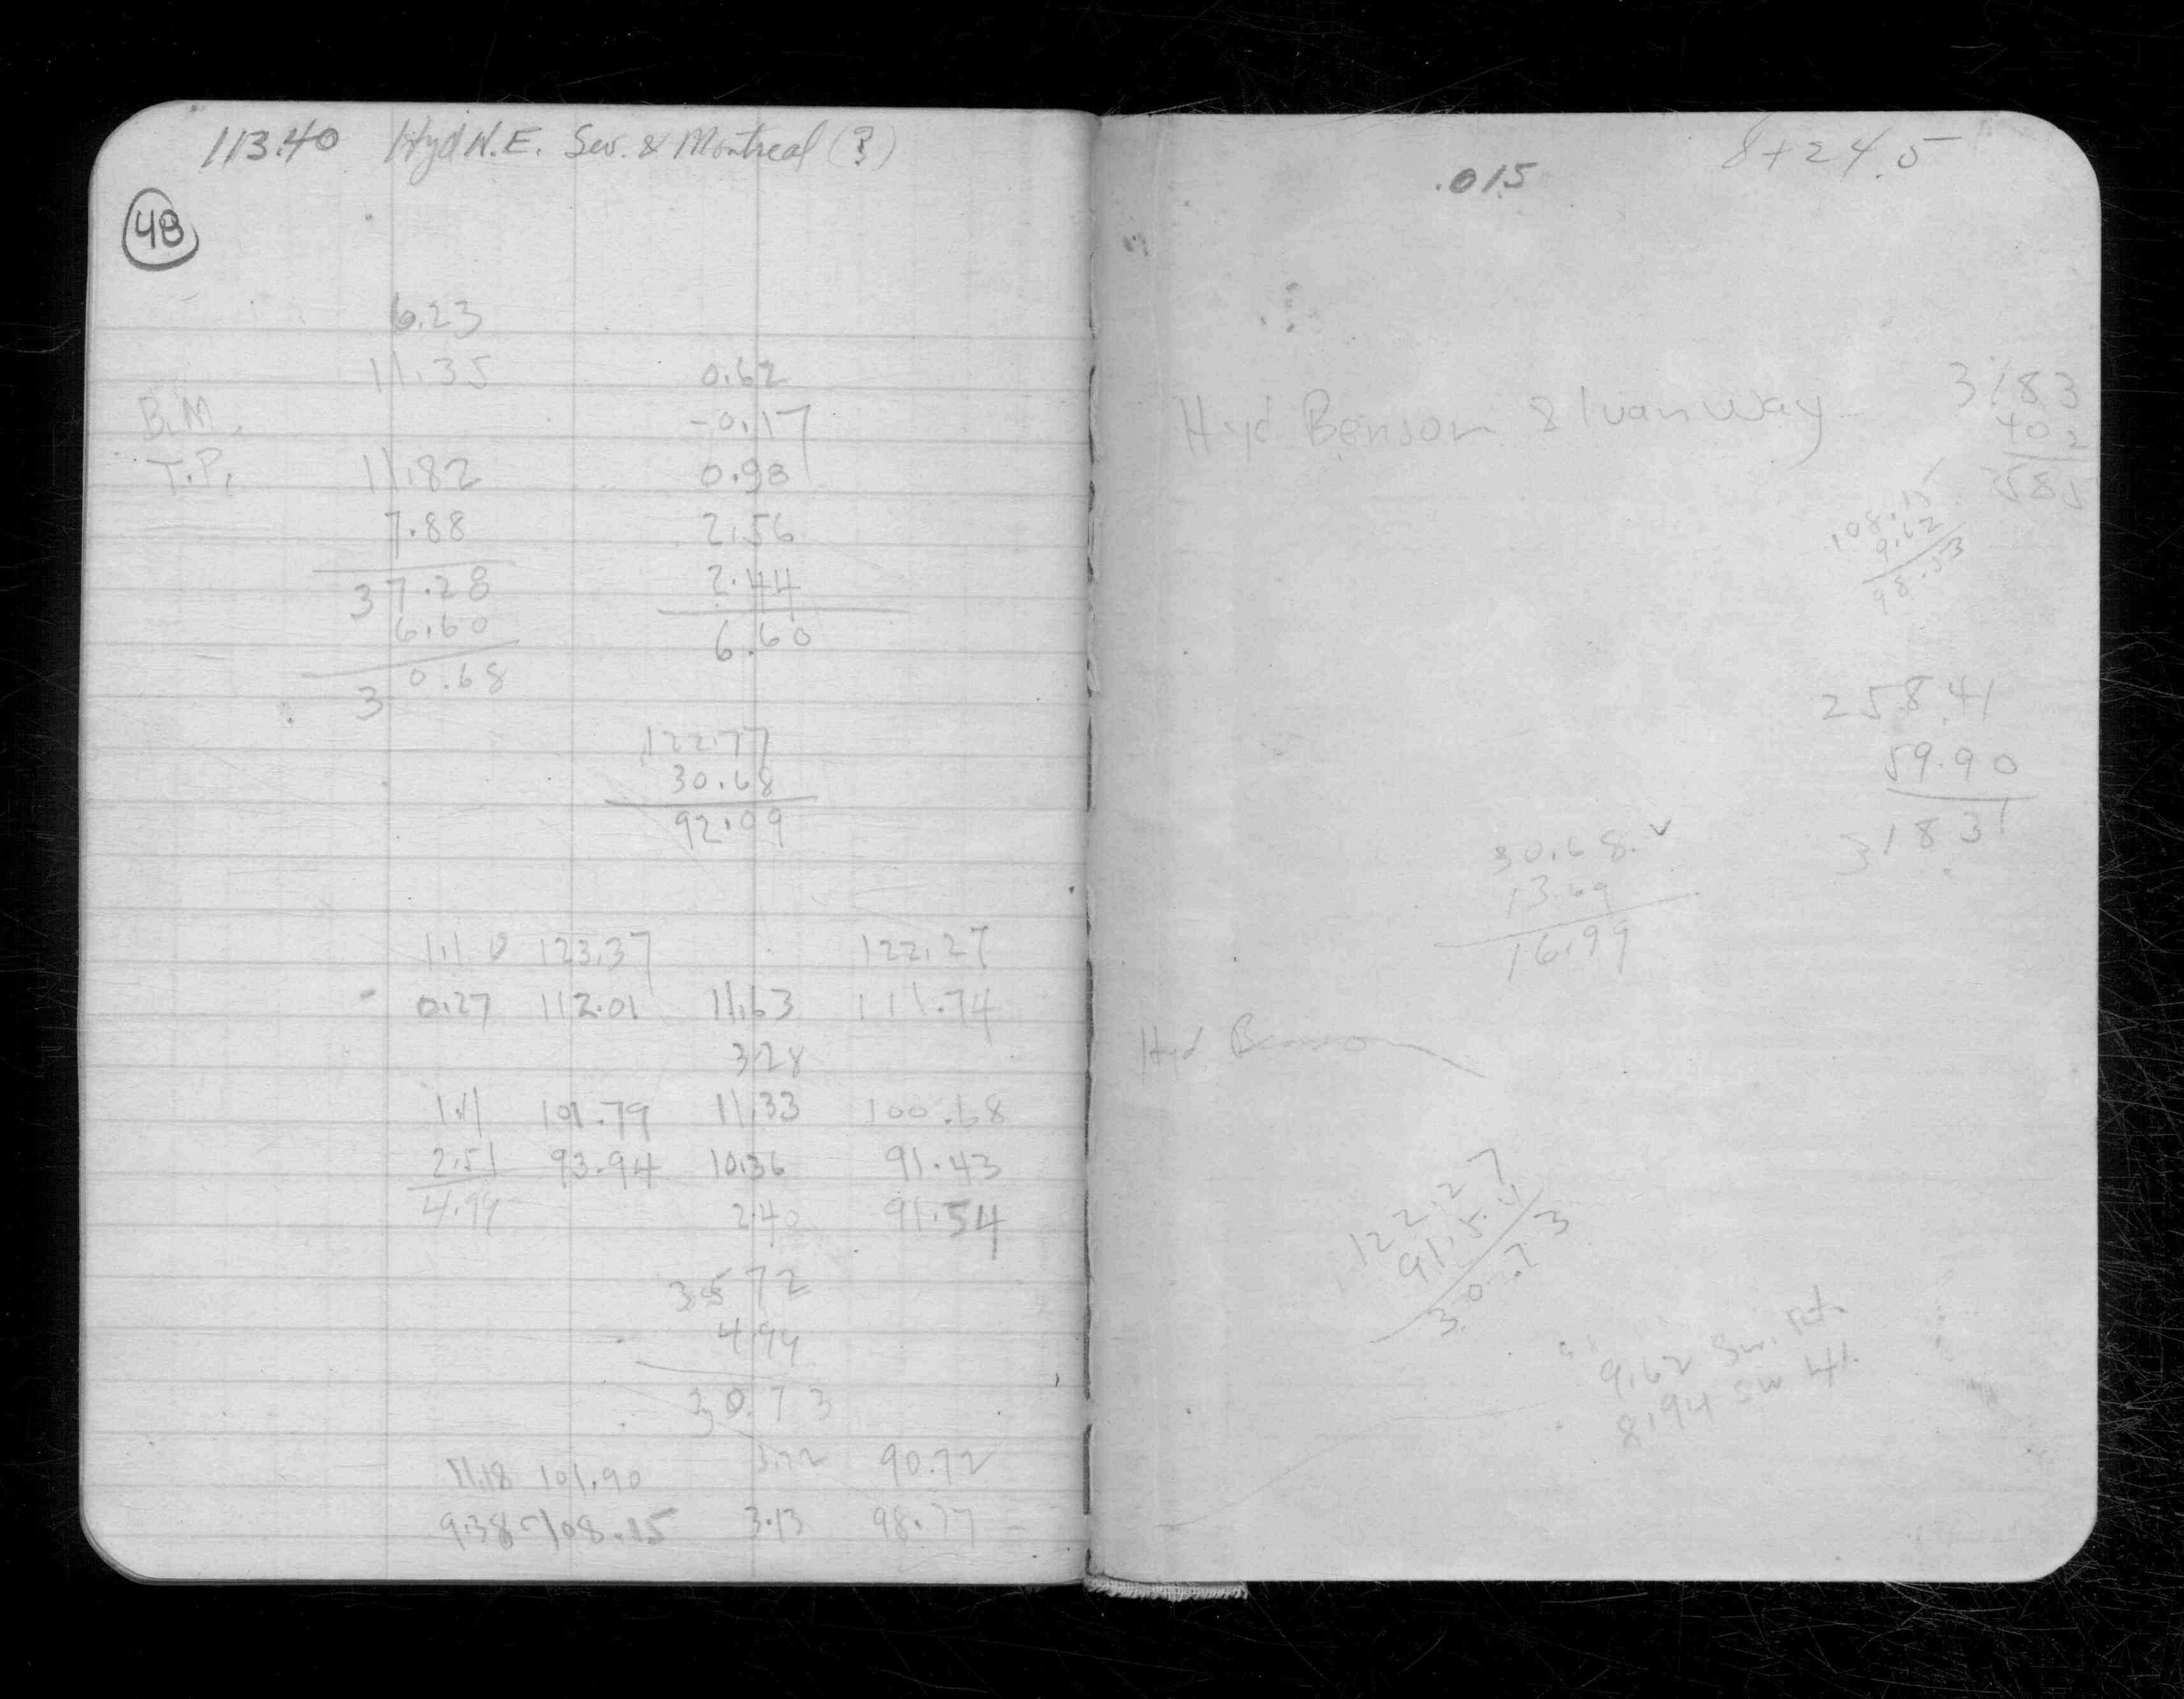 113.40 Hyd N.E. Sev. & Montreal (?)
48
6.23
11.35 0.62
B.M. -0.17
T.P. 11.82 0.98
7.88 2.56
37.28 2.44
6.60 6.60
30.68
122.77
30.68
92.09
1.10 123.37 122.27
0.27 112.01 11.63 111.74
3.28
1.11 101.79 11.33 100.68
2.51 93.94 10.36 91.43
4.99 2.40 91.54
35.72
4.99
30.73
11.18 101.90 90.72
9.38 108.15 3.13 98.77
.015 8+24.5
Hyd Benson & Ivanway
3183
402
585
108.15
9.62
98.53
258.41
59.90
31831
30.68
13.69
16.99
Hyd. Benson
122.27
91.54
30.73
9.62 Sw. Rt.
8.94 Sw Lft.